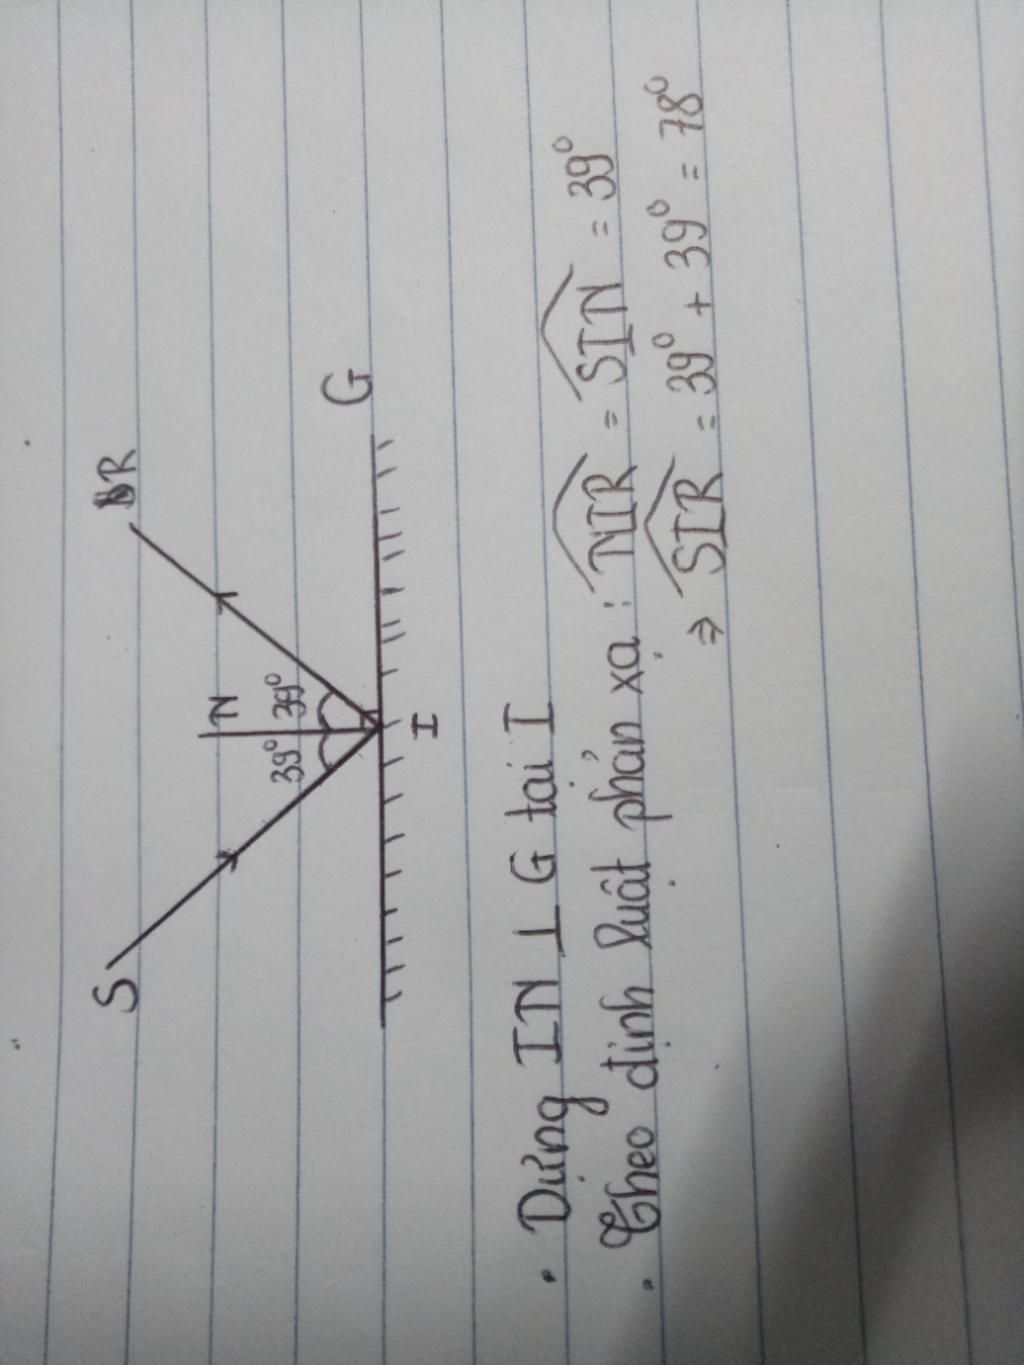 S
R
N
39° 39°
G
I
. Dựng IN ⊥ G tại I
. Theo định luật phản xạ : NIR = SIN = 39°
⇒ SIR = 39° + 39° = 78°